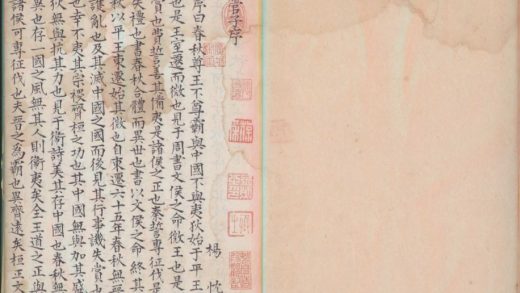 管子序
楊忱
序曰春秋尊王不尊霸與中國不與夷狄始于平王
也是王室遷而微也見于周書文侯之命微王也是
賞也費誓善其備夷是諸侯之正也秦誓專征伐是
失禮也書春秋合體而異世也書以文侯之命終其
秋以平王東遷始其微也自東遷六十五年春秋無晉
護亂也及其滅中國之國而後見其行事譏失賞也
也幸不夷其宗稷齊桓之功也其中國無與加其盛
無與抗其力也見于衛詩美其存中國也春秋無
與存一國之風無其人則衛夷矣全王道之正與
諸侯可專征伐也夫晉之為霸也異齊遠矣桓正文